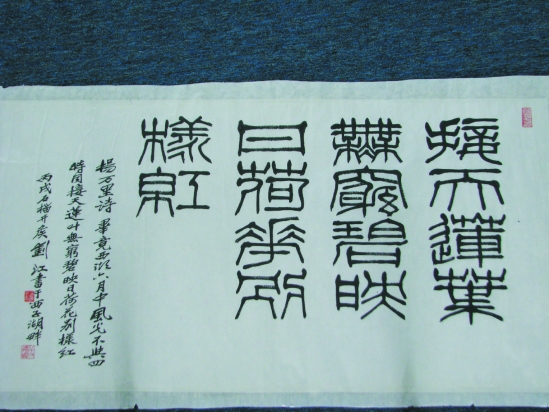 接天蓮葉
無窮碧映
日荷花別
樣紅
楊万里诗 畢竟西湖六月中風光不與四
時同接天蓮叶無窮碧映日荷花別樣紅
丙戌 劉江書于西子湖畔